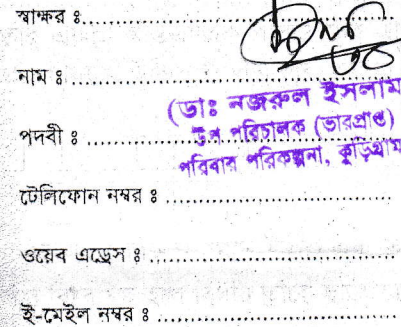 স্বাক্ষর ঃ
নাম ঃ
(ডাঃ নজরুল ইসলাম
পদবী ঃ উপ পরিচালক (ভারপ্রাপ্ত)
পরিবার পরিকল্পনা, কুড়িগ্রাম
টেলিফোন নম্বর ঃ
ওয়েব এড্রেস ঃ
ই-মেইল নম্বর ঃ